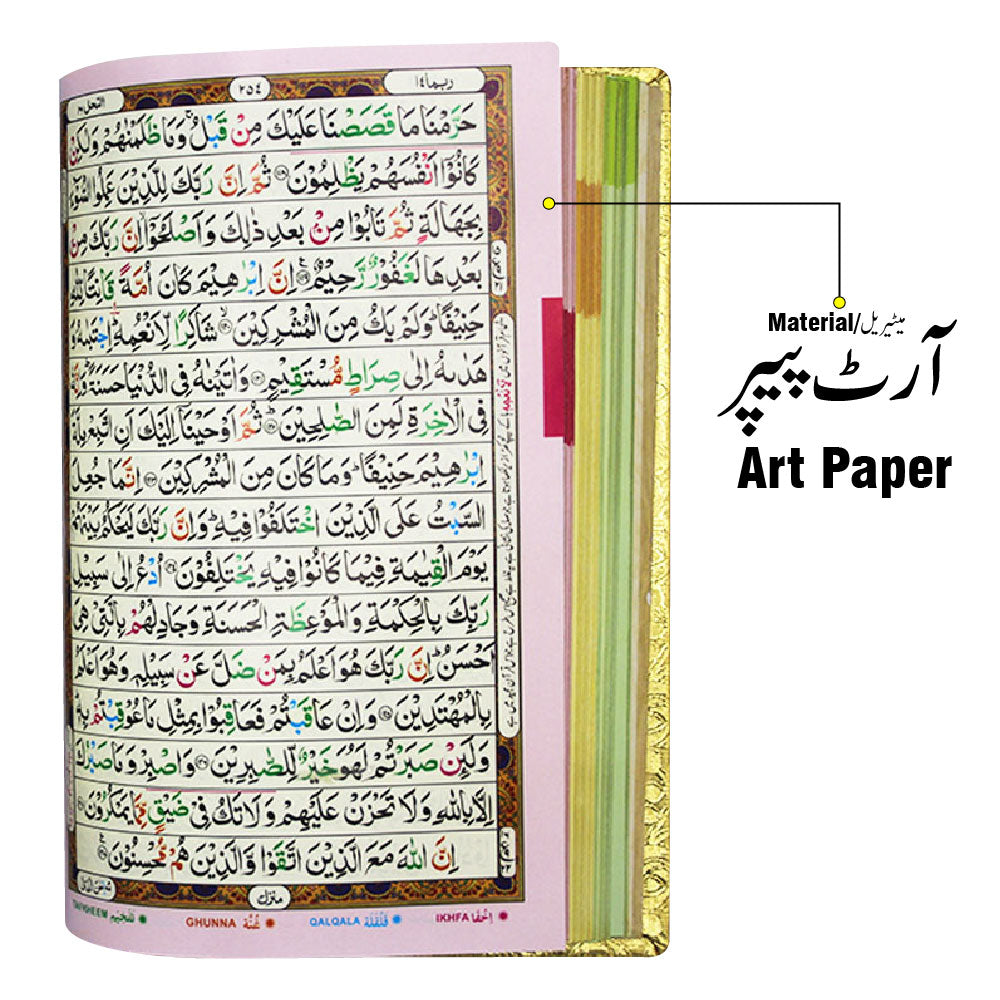 ربما ۱۴
۲۵۴
النحل ۱۶
حَرَّمْنَا مَا قَصَصْنَا عَلَيْكَ مِنْ قَبْلُ ۚ وَمَا ظَلَمْنٰهُمْ وَلٰكِنْ
كَانُوْۤا اَنْفُسَهُمْ يَظْلِمُوْنَ ثُمَّ اِنَّ رَبَّكَ لِلَّذِيْنَ عَمِلُوا السُّوْٓءَ
بِجَهَالَةٍ ثُمَّ تَابُوْا مِنْۢ بَعْدِ ذٰلِكَ وَاَصْلَحُوْۤا اِنَّ رَبَّكَ مِنْۢ
بَعْدِهَا لَغَفُوْرٌ رَّحِيْمٌ اِنَّ اِبْرٰهِيْمَ كَانَ اُمَّةً قَانِتًا لِّلّٰهِ
حَنِيْفًا ؕ وَلَمْ يَكُ مِنَ الْمُشْرِكِيْنَ شَاكِرًا لِّاَنْعُمِهٖ ؕ اِجْتَبٰىهُ وَ
هَدٰىهُ اِلٰى صِرَاطٍ مُّسْتَقِيْمٍ وَاٰتَيْنٰهُ فِى الدُّنْيَا حَسَنَةً ؕ وَاِنَّهٗ
فِى الْاٰخِرَةِ لَمِنَ الصّٰلِحِيْنَ ثُمَّ اَوْحَيْنَاۤ اِلَيْكَ اَنِ اتَّبِعْ مِلَّةَ
اِبْرٰهِيْمَ حَنِيْفًا ؕ وَمَا كَانَ مِنَ الْمُشْرِكِيْنَ اِنَّمَا جُعِلَ
السَّبْتُ عَلَى الَّذِيْنَ اخْتَلَفُوْا فِيْهِ ؕ وَاِنَّ رَبَّكَ لَيَحْكُمُ بَيْنَهُمْ
يَوْمَ الْقِيٰمَةِ فِيْمَا كَانُوْا فِيْهِ يَخْتَلِفُوْنَ اُدْعُ اِلٰى سَبِيْلِ
رَبِّكَ بِالْحِكْمَةِ وَالْمَوْعِظَةِ الْحَسَنَةِ وَجَادِلْهُمْ بِالَّتِىْ هِىَ
اَحْسَنُ ؕ اِنَّ رَبَّكَ هُوَ اَعْلَمُ بِمَنْ ضَلَّ عَنْ سَبِيْلِهٖ وَهُوَ اَعْلَمُ
بِالْمُهْتَدِيْنَ وَاِنْ عَاقَبْتُمْ فَعَاقِبُوْا بِمِثْلِ مَا عُوْقِبْتُمْ بِهٖ ؕ
وَلَئِنْ صَبَرْتُمْ لَهُوَ خَيْرٌ لِّلصّٰبِرِيْنَ وَاصْبِرْ وَمَا صَبْرُكَ
اِلَّا بِاللّٰهِ وَلَا تَحْزَنْ عَلَيْهِمْ وَلَا تَكُ فِىْ ضَيْقٍ مِّمَّا يَمْكُرُوْنَ
اِنَّ اللّٰهَ مَعَ الَّذِيْنَ اتَّقَوْا وَّالَّذِيْنَ هُمْ مُّحْسِنُوْنَ
منزل ۳
IKHFA اِخْفَا
QALQALA قَلْقَلَة
GHUNNA غُنَّة
Material/میٹیریل
آرٹ پیپر
Art Paper